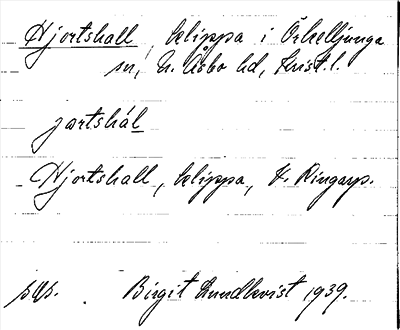 Hjortshall, klippa i Örkelljunga
sn, N. Åsbo hd, Krist. l.
jartshál
Hjortshall, klippa, V. Ringarp.
Birgit Lundkvist 1939.